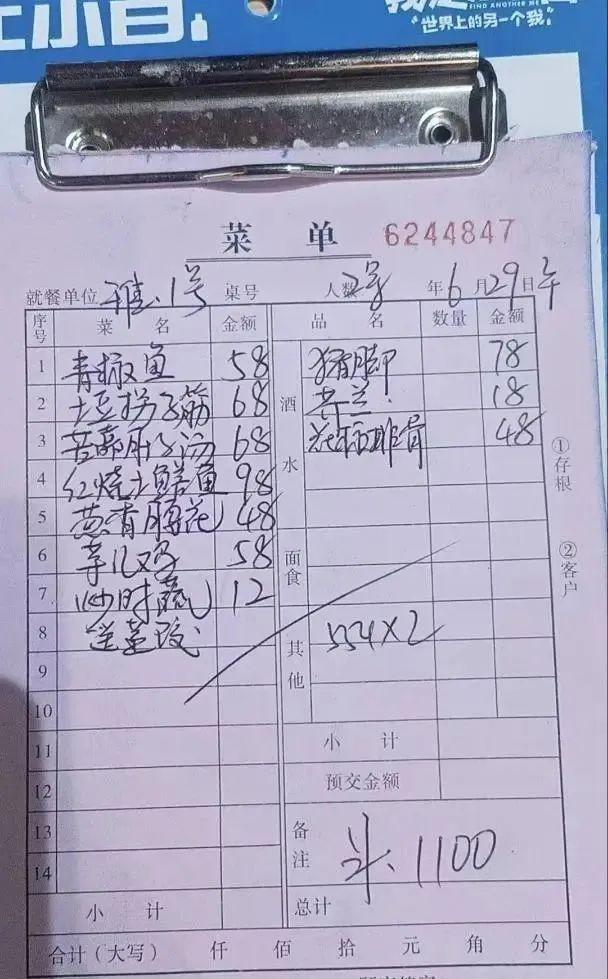 FIND ANOTHER ME
"世界上的另一个我"
菜 单 6244847
就餐单位 雅.1号 桌号 人数 2号 年6月29日午
序号 菜 名 金额 品 名 数量 金额
1 青椒鱼 58 酒水 猪脚 78
2 土豆拐子筋 68 18
3 68 排骨 48
4 红烧土鳝鱼 98
5 48
6 58 面食
7 炒时蔬 12
8 送 其他 554×2
9
10
11 小 计
12 预交金额
13 备注 斗.1100
14
小 计 总计
合计(大写) 仟 佰 拾 元 角 分
①存根
②客户